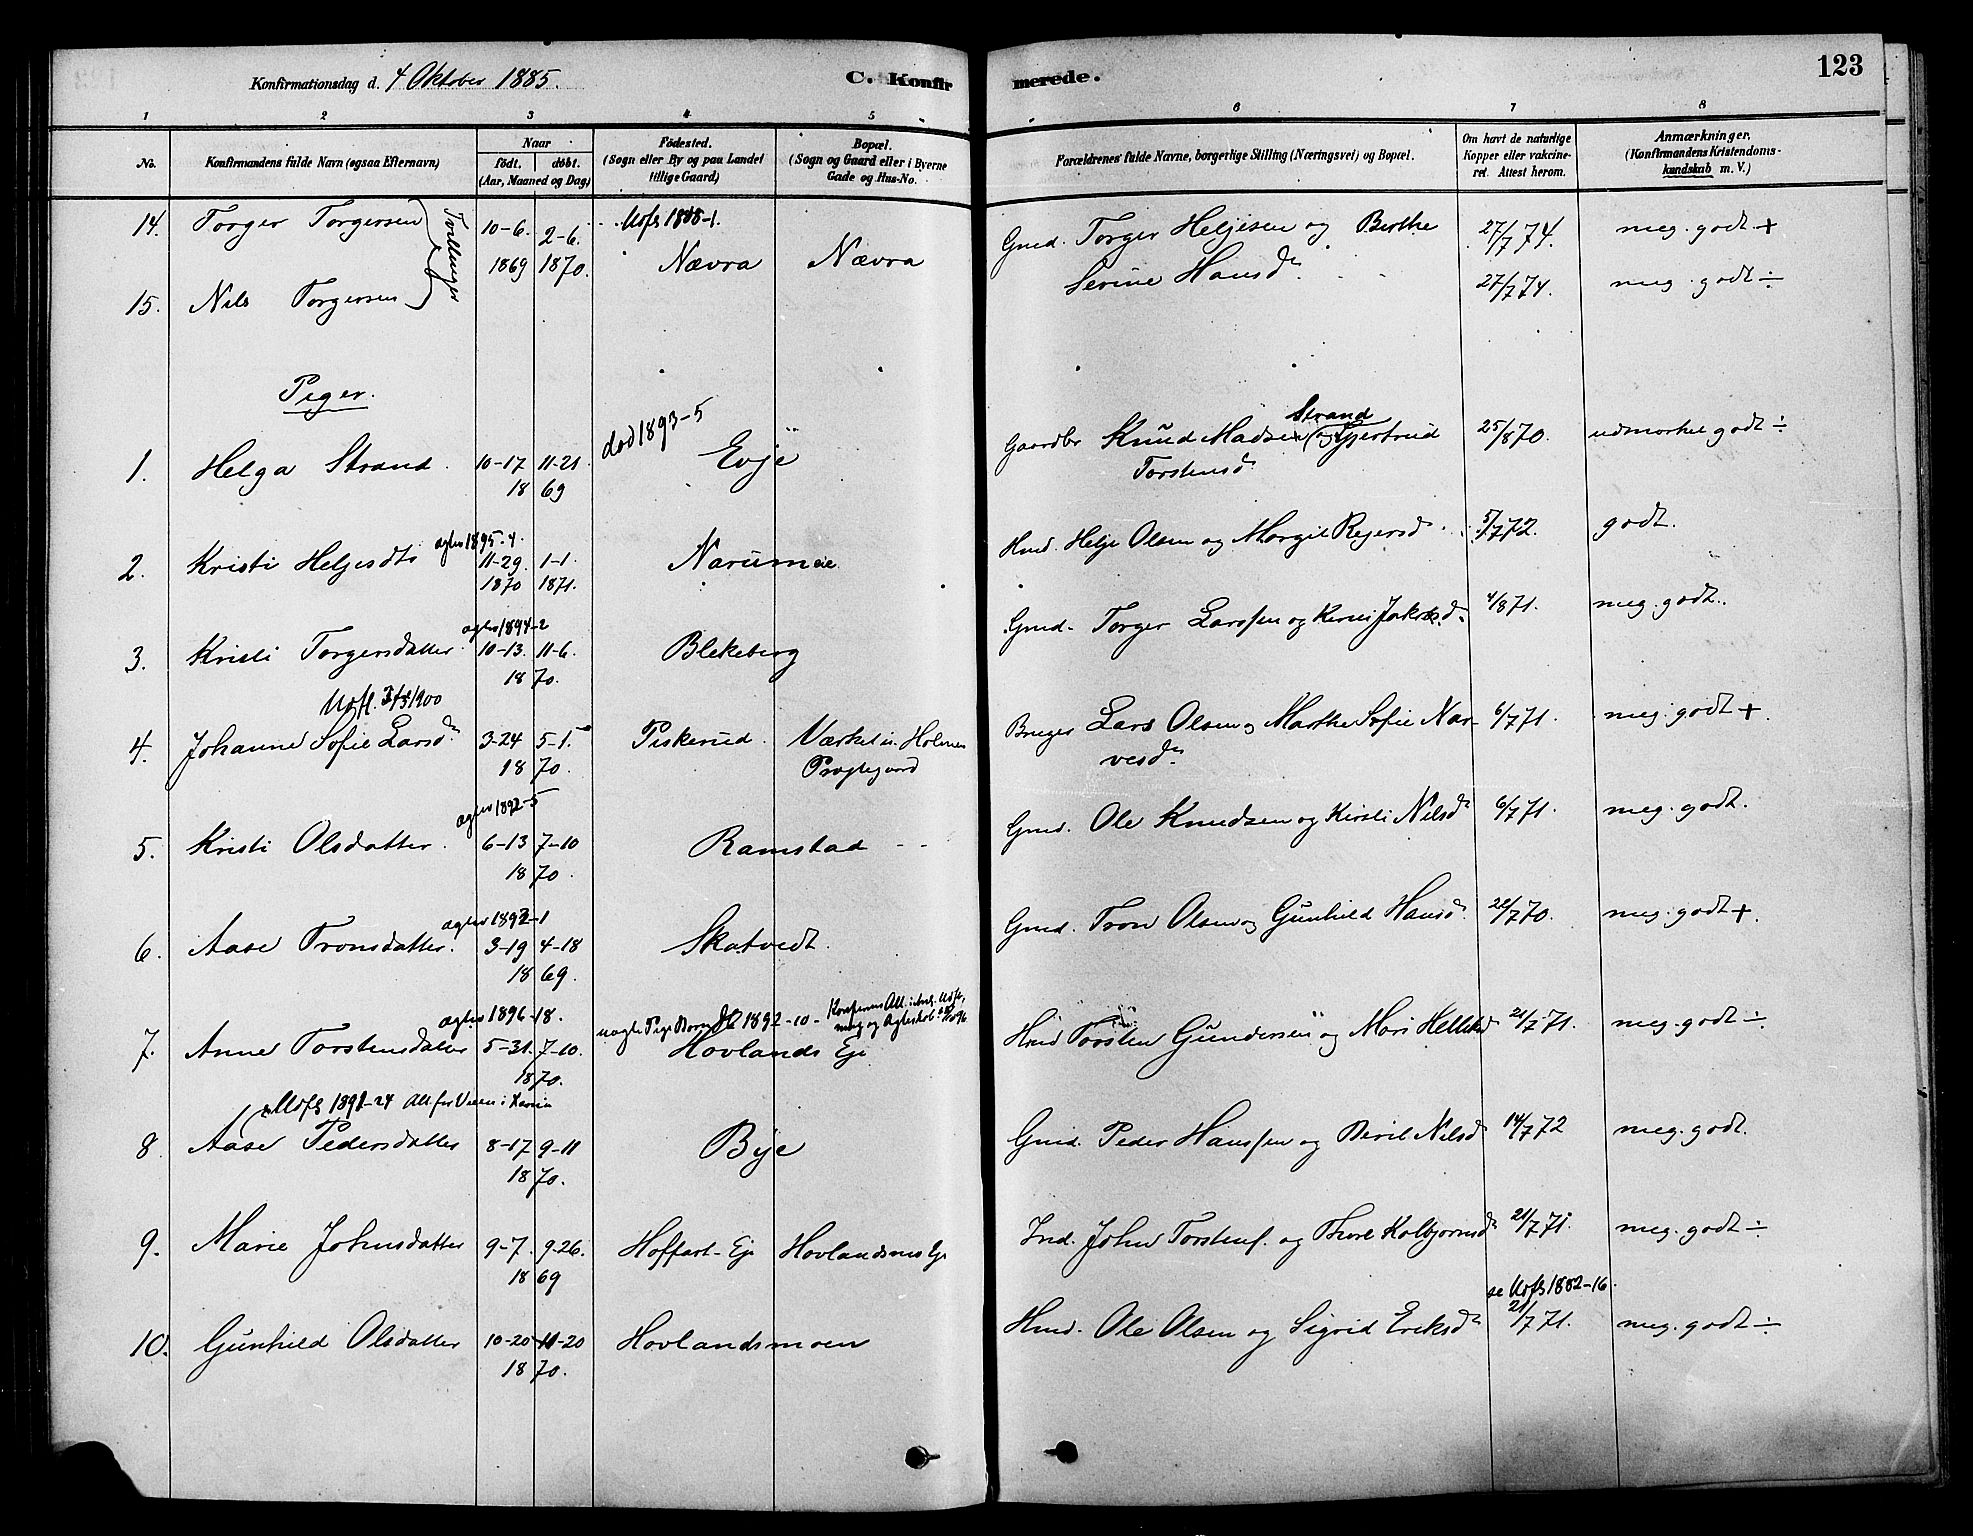 Konfirmationsdag d. 4 Oktober 1885.
C. Konfirmerede.
123
1 2 3 4 5 6 7 8
No. Konfirmandens fulde Navn (ogsaa Efternavn) Naar födt. döbt. (Aar, Maaned og Dag) Födested. (Sogn eller By og paa Landet tillige Gaard) Bopæl. (Sogn og Gaard eller i Byerne Gade og Hus-No. Forældrenes fulde Navne, borgerlige Stilling (Næringsvei) og Bopæl. Om havt de naturlige Kopper eller vakcineret. Attest herom. Anmærkninger. (Konfirmandens Kristendomskundskab m. V.)
Uofs 1888-1.
14. Torger Torgersen Tvillinger 10-6. 1869 2-6. 1870. Nævra Nævra Gmd. Torger Heljesen og Berthe Serine Hansd. 27/7 74. meg. godt +
15. Nils Torgersen 27/7 74. meg. godt ÷
Piger.
död 1893-5
1. Helga Strand 10-17 11-21. 1869 Evje Gaardbr Knud Madsen Strand og Gjertrud Torstensd 25/8 70. udmærket godt ÷
agtev 1895-4.
2. Kristi Heljesdt 11-29. 1870 1-1. 1871. Narumeie Hmd. Helje Olsen og Margit Rejersd 5/7 72. godt.
agtev 1894-2
3. Kristi Torgersdatter 10-13. 11-6. 1870. Blekeberg Gmd. Torger Larssen og Kersti Jakobsd. 4/8 71. meg. godt.
4. Johanne Sofie Larsd 3-24 5-1. 1870. Piskerud. Værket u. Holmen Prægtegaard Bruger Lars Olsen og Marthe Sofie Narvesd. 6/7 71. meg. godt +.
agtev 1892-5
5. Kristi Olsdatter 6-13 7-10 1870. Ramstad Gmd. Ole Knudsen og Kirsti Nilsd 6/7 71. meg. godt.
agtev 1892-1
6. Aase Tronsdatter. 3-19 4-18 1869. Skatvedt. Gmd. Tron Olsen og Gunhild Hansd. /7 70. meg. godt +.
agtev 1896-18. uagte Pige Born 1892-10-
7. Anne Torstensdatter 5-31. 7-10. 1870. Hovlands Eje Hmd Torsten Gundersen og Mari 21/7 71. meg. godt ÷
Uofs 1891-24 Att. for Vielse i
8. Aase Pedersdatter 8-17 9-11 1870. Bye Gmd. Peder Hanssen og Beret Nilsd 14/7 72 meg. godt.
9. Marie Johnsdatter 9-7. 9-26. 1869 Hoffart-Eje Hovlandsmoe Eje Ind. John Torstens. og Thore Kolbjørnsd 21/7 71. meg. godt ÷
se Uofs 1882-16.
10. Gunhild Olsdatter 10-20 11-20 1870. Hovlandsmoen Hmd. Ole Olsen og Sigrid Eriksd 21/7 71. meg. godt ÷